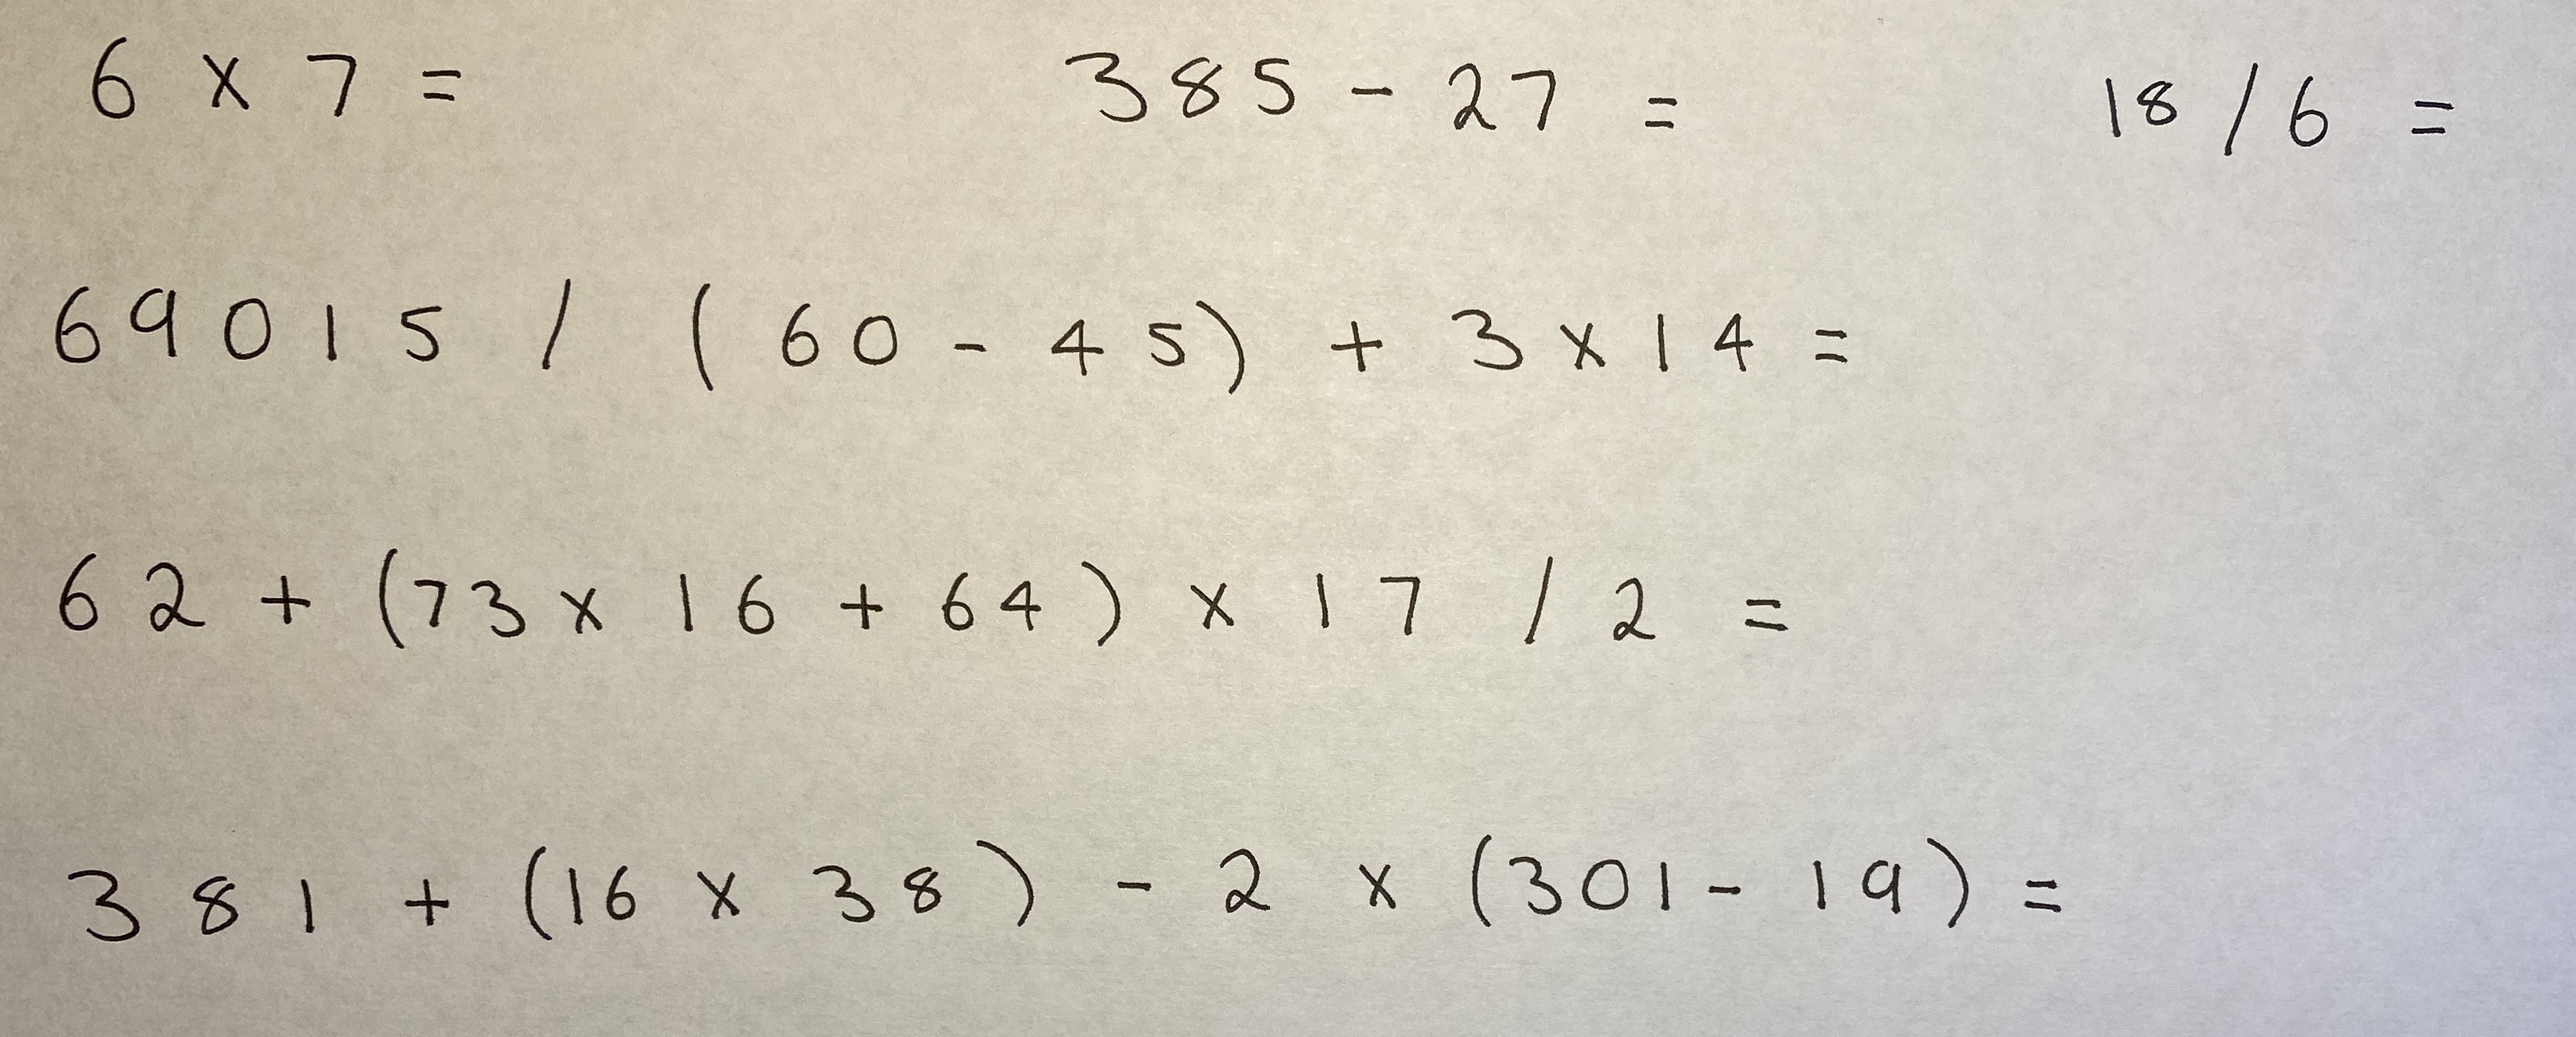 6 x 7 = 385 - 27 = 18 / 6 =
69015 / (60 - 45) + 3 x 14 =
62 + (73 x 16 + 64) x 17 / 2 =
381 + (16 x 38) - 2 x (301 - 19) =